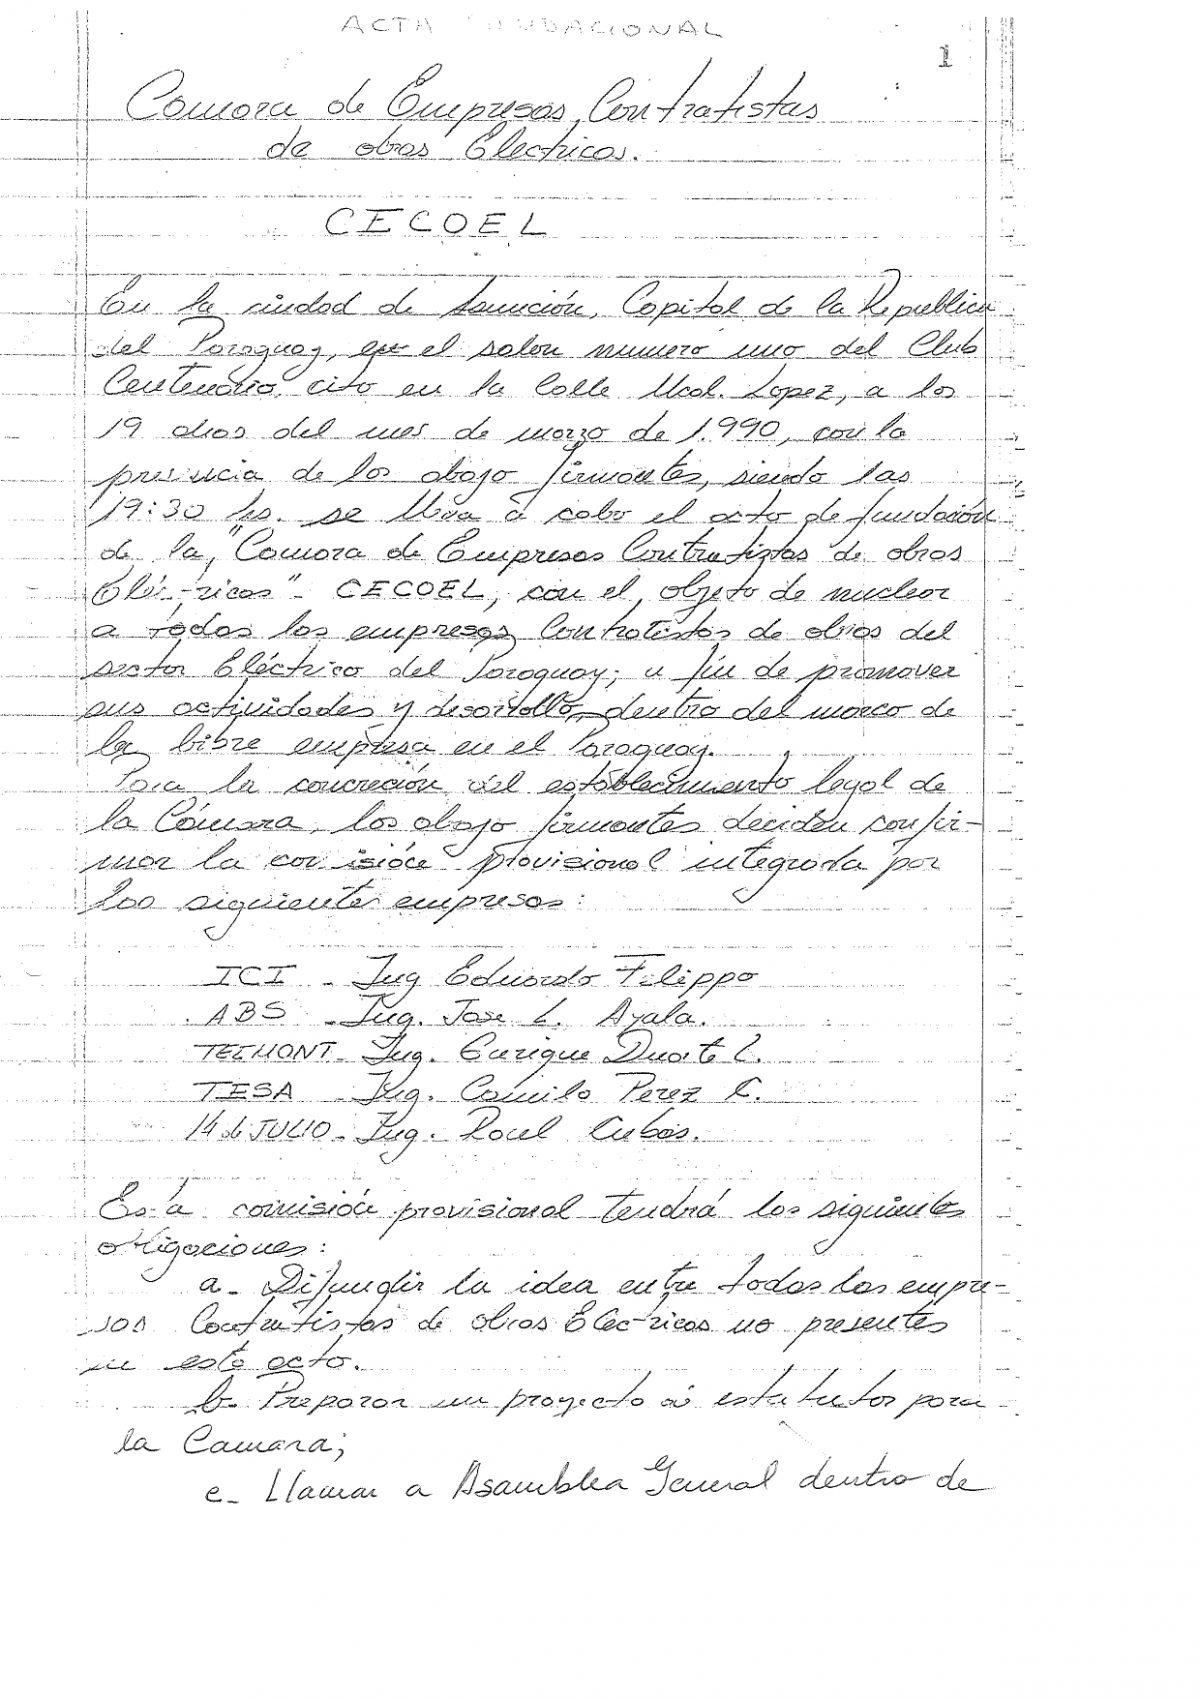 ACTA FUNDACIONAL
1
Camara de Empresas Contratistas
de obras Electricas.
CECOEL
En la ciudad de Asunción, Capital de la Republica
del Paraguay, en el salon numero uno del Club
Centenario, cito en la Calle Mcal. Lopez, a los
19 dias del mes de marzo de 1.990, con la
presencia de los abajo firmantes, siendo las
19:30 hs. se lleva a cabo el acto de fundación
de la, "Camara de Empresas Contratistas de obras
Eléctricas" - CECOEL, con el objeto de nuclear
a todas las empresas Contratistas de obras del
sector Eléctrico del Paraguay; a fin de promover
sus actividades y desarrollo, dentro del marco de
la libre empresa en el Paraguay.
Para la concreción del establecimiento legal de
la Cámara, los abajo firmantes deciden confir-
mar la comisión provisional integrada por
las siguientes empresas:
ICI - Ing Eduardo Filippo
ABS - Ing. Jose L. Ayala.
TECMONT - Ing. Enrique Duarte L.
TESA - Ing. Camilo Perez C.
14 de JULIO - Ing. Raul Cubas.
Esta comisión provisional tendrá las siguientes
obligaciones:
a- Difundir la idea entre todas las empre-
sas Contratistas de obras Eléctricas no presentes
en este acto.
b- Preparar un proyecto de estatutos para
la Camara;
c- Llamar a Asamblea General dentro de